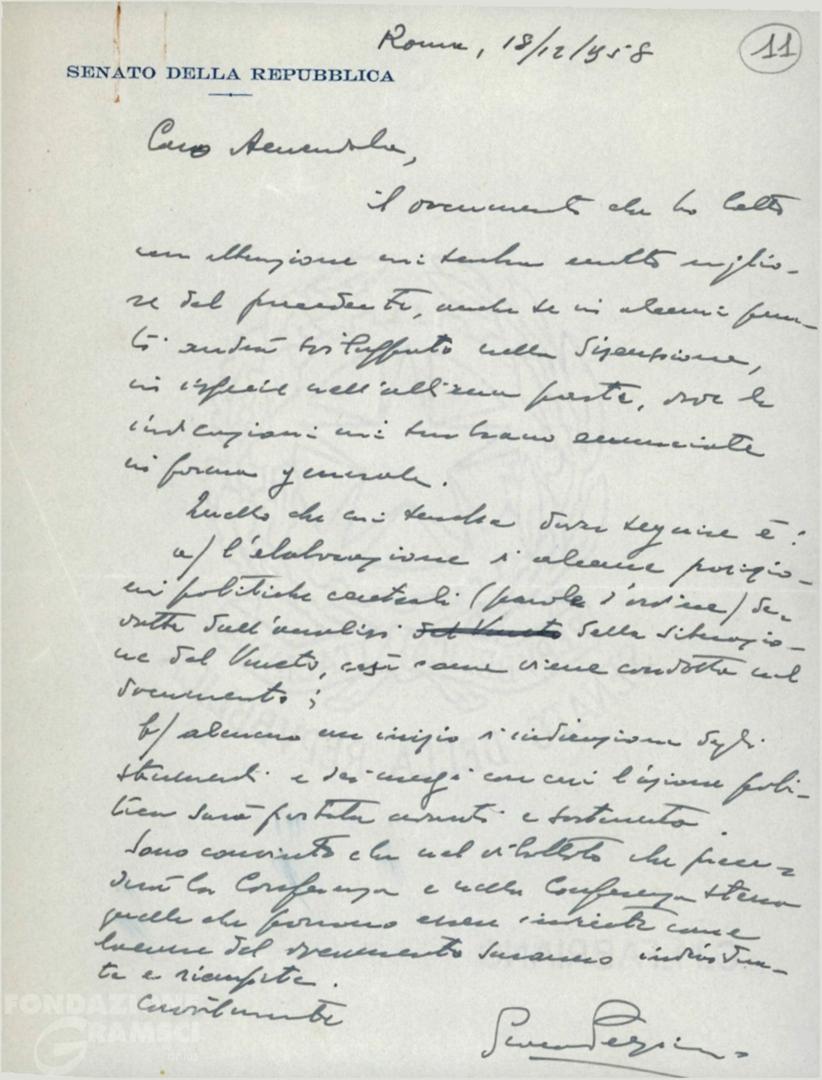 Roma, 18/12/958
11
SENATO DELLA REPUBBLICA
Caro Amendola,
il documento che ho letto
con attenzione mi sembra molto miglio-
re del precedente, anche se in alcuni pun-
ti andrà sviluppato nella discussione,
in ispecie nell'ultima parte, dove le
indicazioni mi sembrano enunciate
in forma generale.
Quello che mi sembra deve seguire è:
a) l'elaborazione di alcune posizio-
ni politiche centrali (parole d'ordine) de-
dotte dall'analisi del Veneto della situazio-
ne del Veneto, così come viene condotta nel
documento;
b) almeno un inizio d'indicazione degli
strumenti e dei mezzi con cui l'azione poli-
tica sarà portata avanti e sostenuta.
Sono convinto che nel dibattito che prece-
derà la Conferenza e nella Conferenza stessa
quelle che possono essere indicate come
lacune del documento saranno individua-
te e riempite.
Cordialmente
FONDAZIONE
GRAMSCI